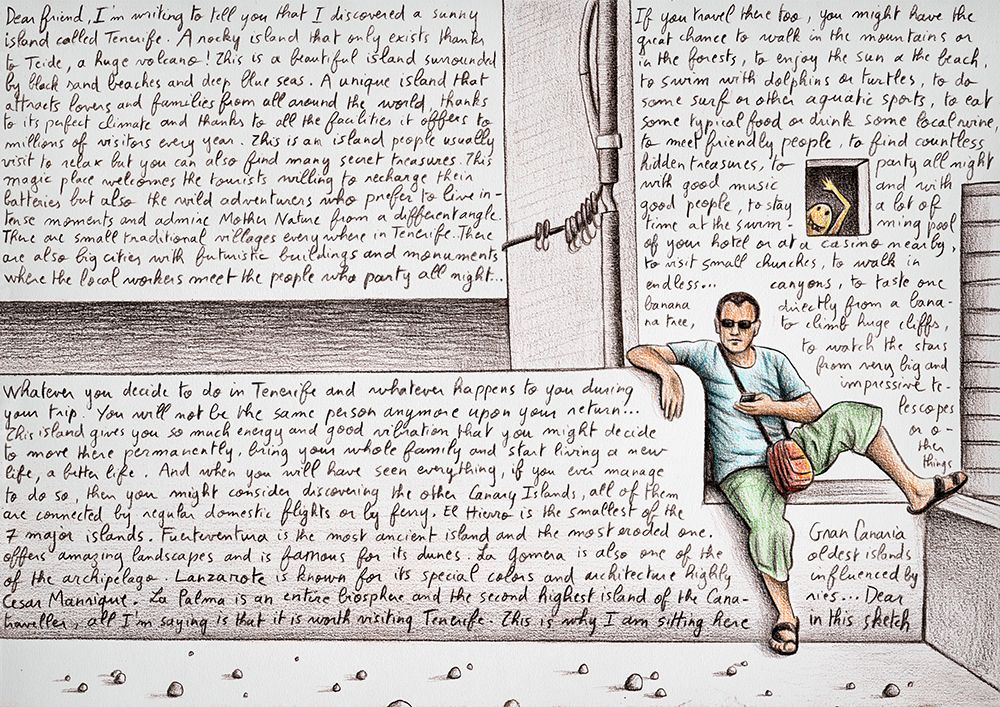 Dear friend, I'm writing to tell you that I discovered a sunny
island called Tenerife. A rocky island that only exists thanks
to Teide, a huge volcano! This is a beautiful island surrounded
by black sand beaches and deep blue seas. A unique island that
attracts lovers and families from all around the world, thanks
to its perfect climate and thanks to all the facilities it offers to
millions of visitors every year. This is an island people usually
visit to relax but you can also find many secret treasures. This
magic place welcomes the tourists willing to recharge their
batteries but also the wild adventurers who prefer to live in-
tense moments and admire Mother Nature from a different angle.
There are small traditional villages everywhere in Tenerife. There
are also big cities with futuristic buildings and monuments
where the local workers meet the people who party all night...
If you travel there too, you might have the
great chance to walk in the mountains or
in the forests, to enjoy the sun & the beach,
to swim with dolphins or turtles, to do
some surf or other aquatic sports, to eat
some typical food or drink some local wine,
to meet friendly people, to find countless
hidden treasures, to party all night
with good music and with
good people, to stay a lot of
time at the swim- ming pool
of your hotel or at a casino nearby,
to visit small churches, to walk in
endless... canyons, to taste one
banana directly from a bana-
na tree, to climb huge cliffs,
to watch the stars
from very big and
impressive te-
lescopes
or o-
ther
things
Whatever you decide to do in Tenerife and whatever happens to you during
your trip. You will not be the same person anymore upon your return...
This island gives you so much energy and good vibration that you might decide
to move there permanently, bring your whole family and start living a new
life, a better life. And when you will have seen everything, if you ever manage
to do so, then you might consider discovering the other Canary Islands, all of them
are connected by regular domestic flights or by ferry. El Hierro is the smallest of the
7 major islands. Fuerteventura is the most ancient island and the most eroded one. Gran Canaria
offers amazing landscapes and is famous for its dunes. La Gomera is also one of the oldest islands
of the archipelago. Lanzarote is known for its special colors and architecture highly influenced by
Cesar Manrique. La Palma is an entire biosphere and the second highest island of the Cana- ries... Dear
traveller, all I'm saying is that it is worth visiting Tenerife. This is why I am sitting here in this sketch